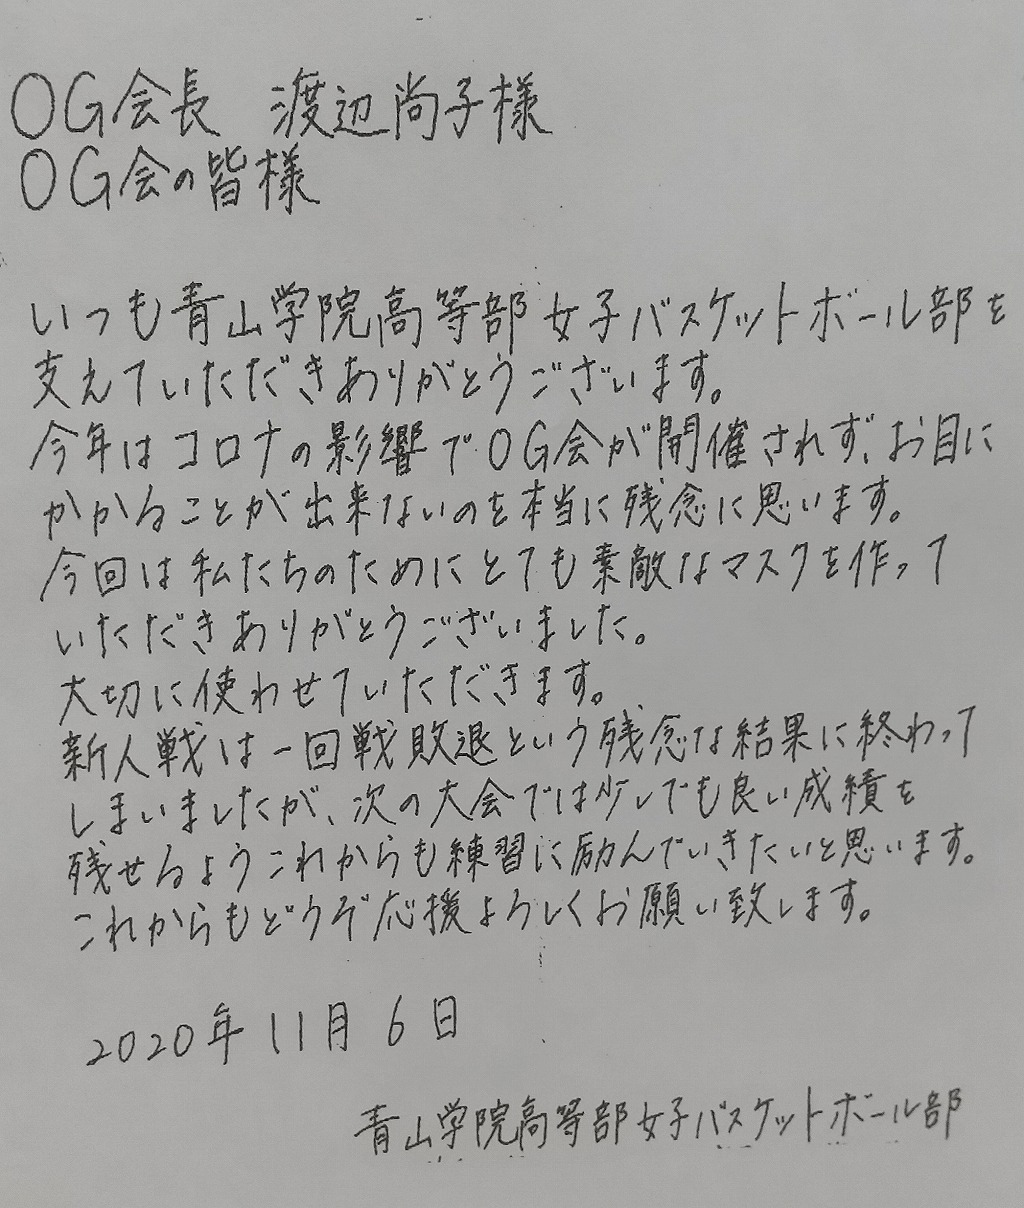 OG会長 渡辺尚子様
OG会の皆様
いつも青山学院高等部女子バスケットボール部を
支えていただきありがとうございます。
今年はコロナの影響でOG会が開催されず、お目に
かかることが出来ないのを本当に残念に思います。
今回は私たちのためにとても素敵なマスクを作って
いただきありがとうございました。
大切に使わせていただきます。
新人戦は一回戦敗退という残念な結果に終わって
しまいましたが、次の大会では少しでも良い成績を
残せるようこれからも練習に励んでいきたいと思います。
これからもどうぞ応援よろしくお願い致します。
2020年11月6日
青山学院高等部女子バスケットボール部